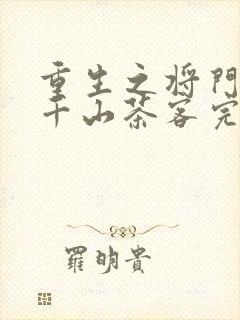 重生之将門
千山茶客完
羅明貴